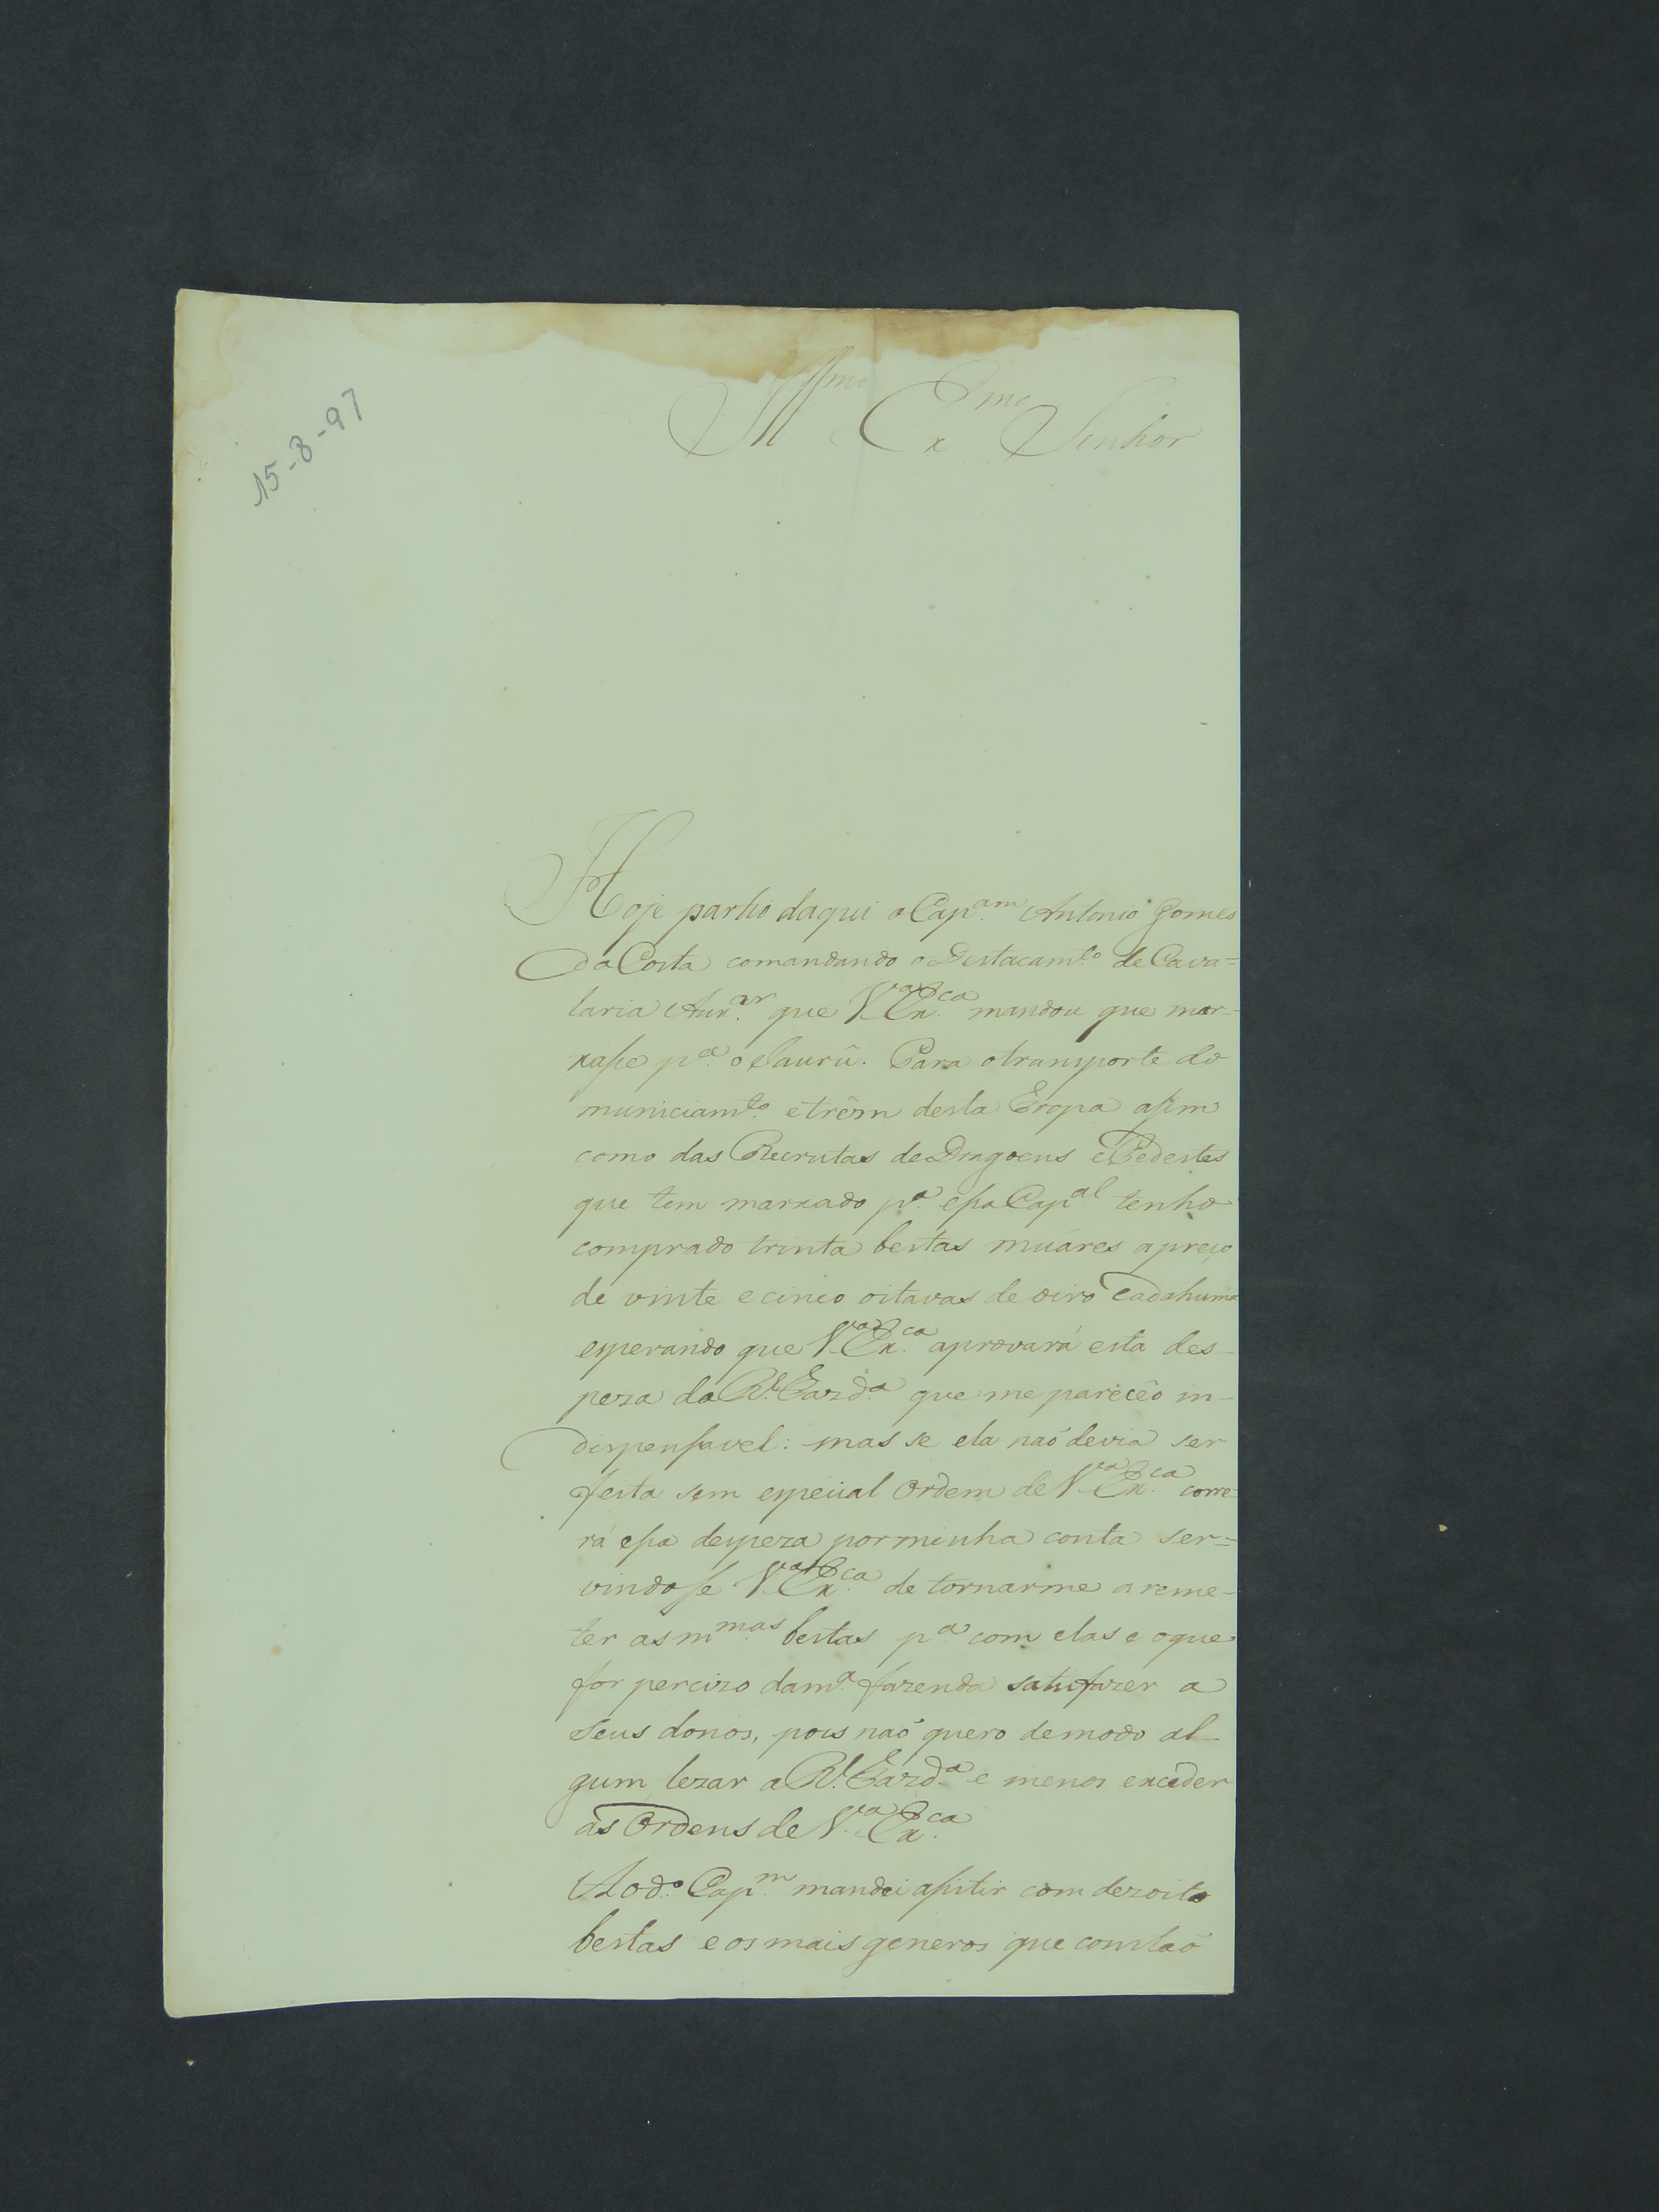 15-8-97
Ill.mo e Ex.mo Senhor
Hoje partio daqui o Cap.am Antonio Gomes
da Costa comandando o Destacam.to de Cava=
laria Aux.ar que V.a Ex.ca mandou que mar-
xasse p.a o Jaurú. Para o transporte do
municiam.to e trêm desta Tropa assim
como das Recrutas de Dragoens e Pedestes
que tem marxado p.a essa Cap.al tenho
comprado trinta bestas muáres a preço
de vinte e cinco oitavas de oiro cada huma
esperando que V.a Ex.ca aprovará esta des-
peza da R.l Fazd.a que me pareceo in-
dispensavel: mas se ela naõ devia ser
feita sem especial Ordem de V.a Ex.ca corre-
rá essa despeza por minha conta ser=
vindose V.a Ex.ca de tornarme a reme-
ter as m.mas bestas p.a com elas e o que
for percizo da m.a fazenda satisfazer a
seus donos, pois naõ quero de modo al-
gum lezar a R.l Fazd.a e menos exceder
as Ordens de V.a Ex.ca
Ao d.o Cap.m mandei assistir com dezoito
bestas e os mais generos que constaõ